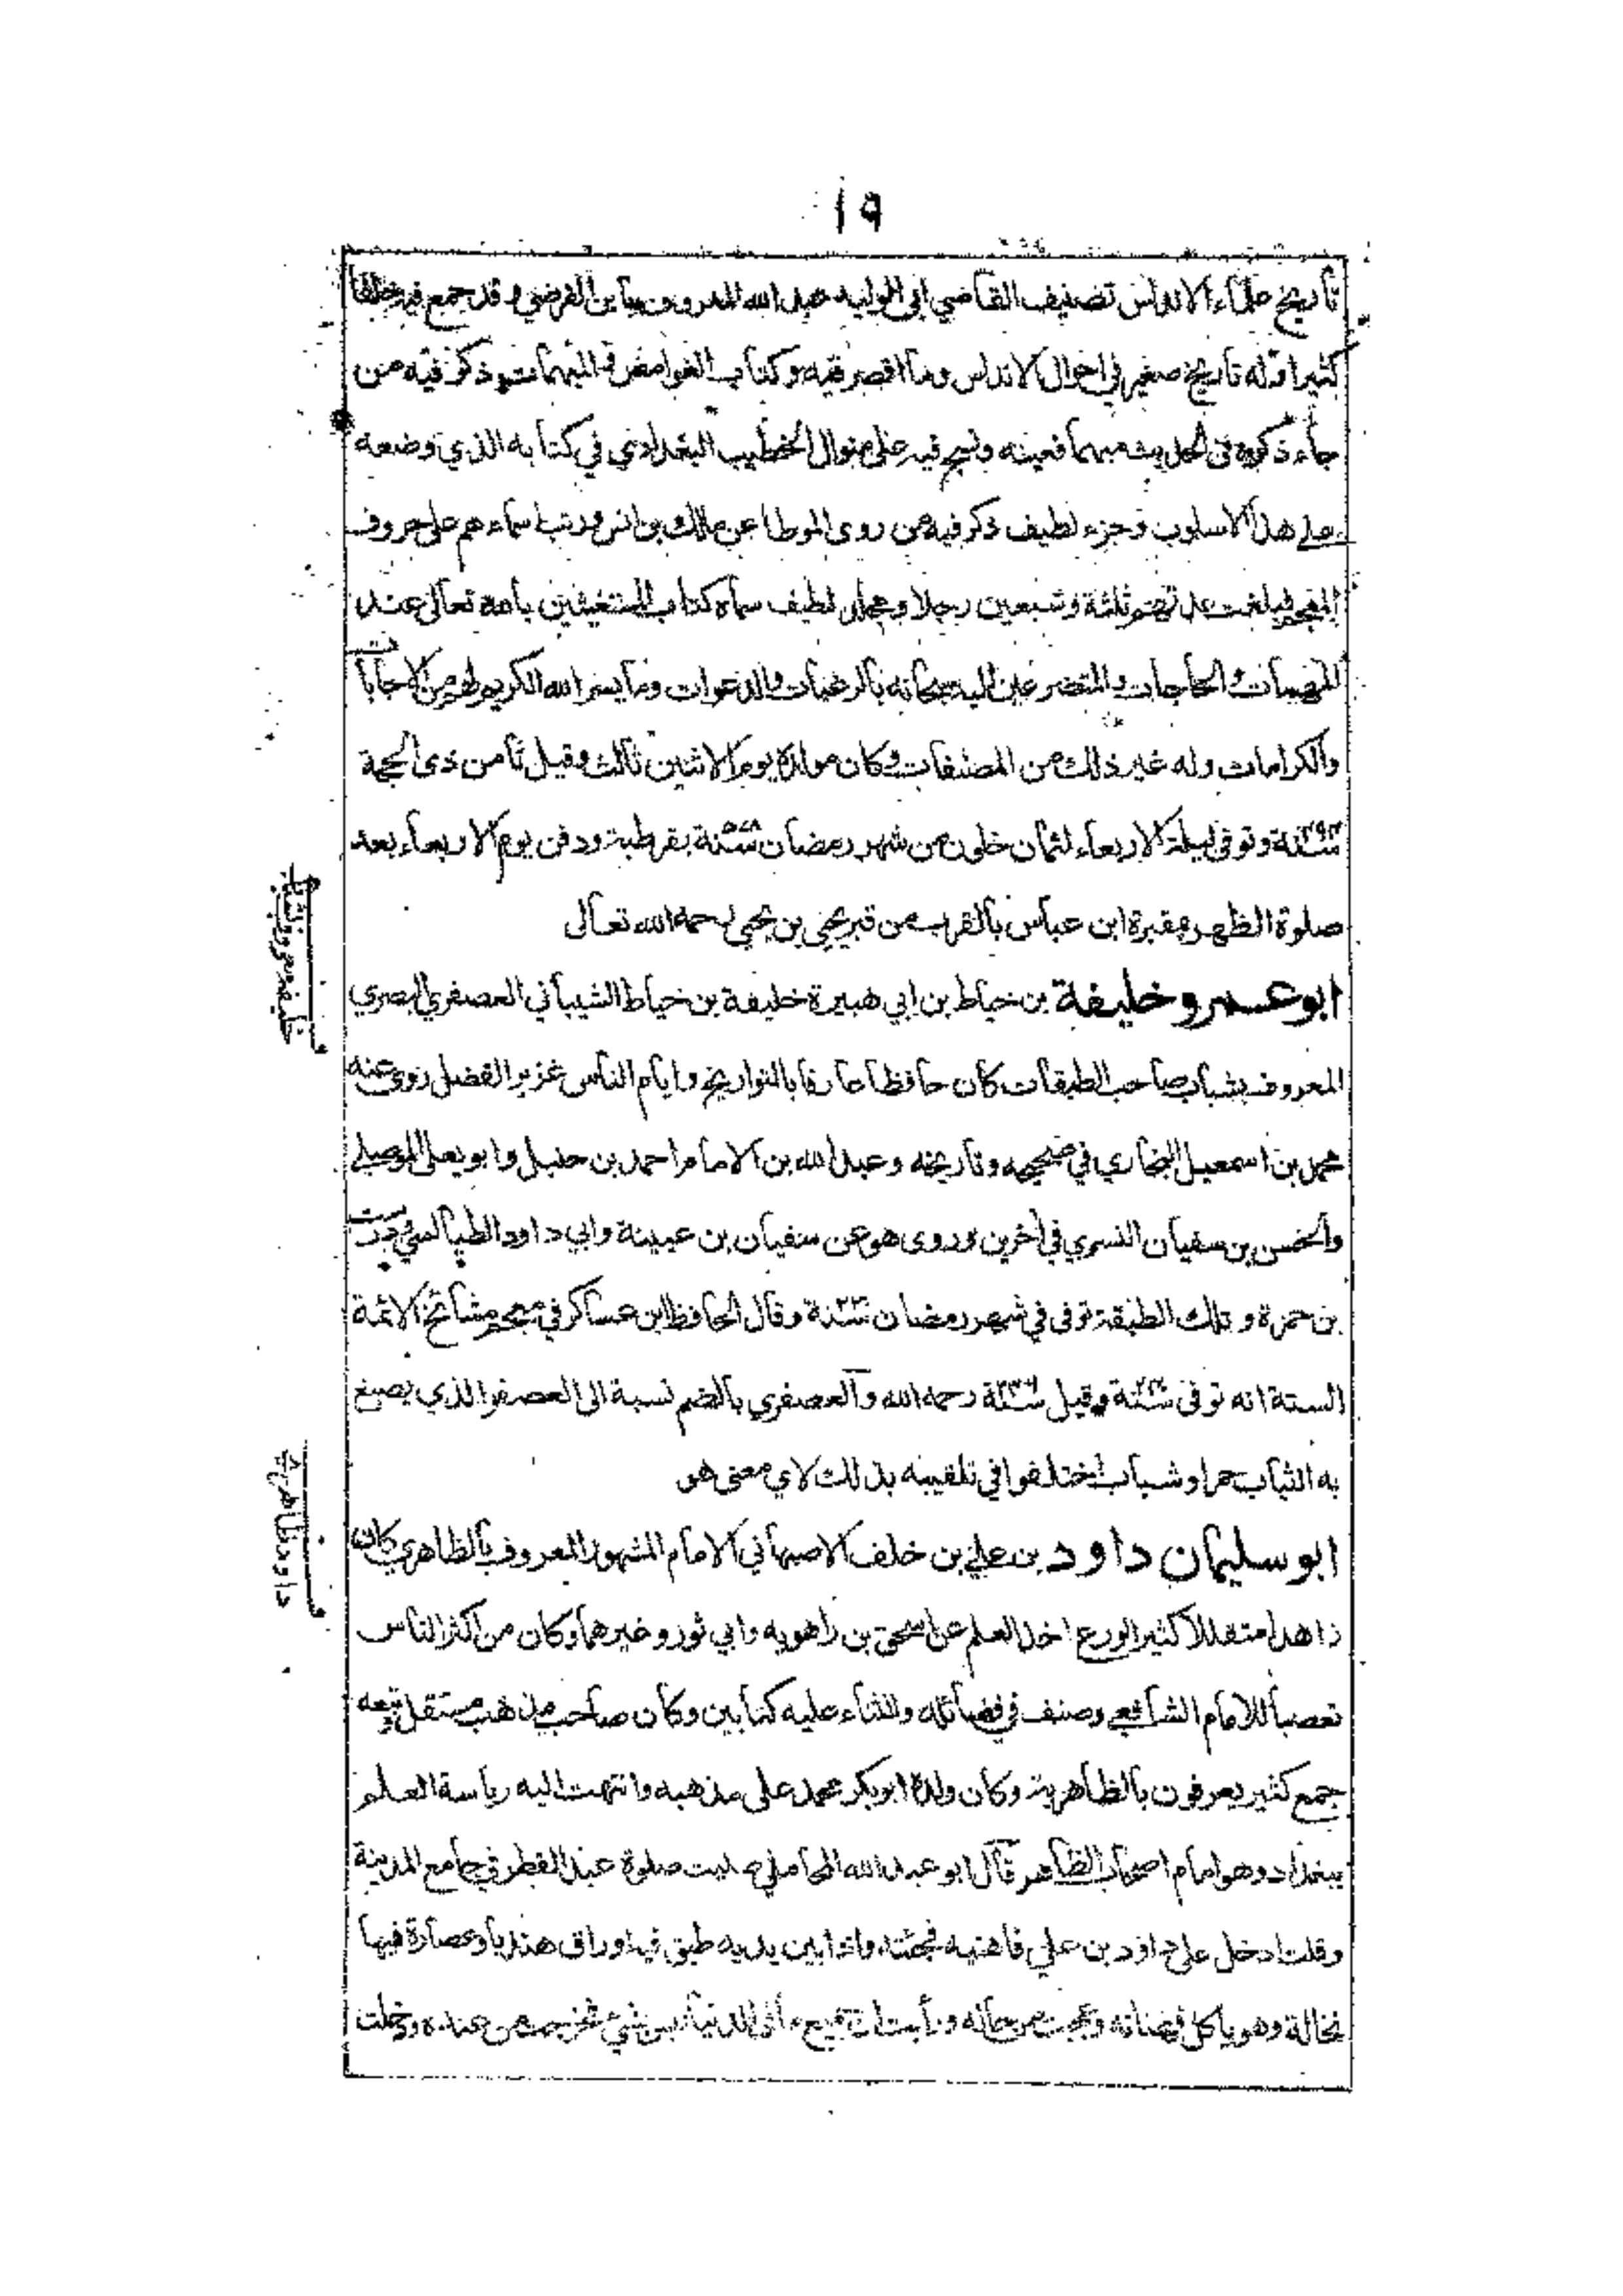 ١٩
تاريخ علماء الاندلس تصنيف القاضي ابي الوليد عبد الله المعروف بابن الفرضي وقد جمع فيه خلقا
كثيرا وله تاريخ صغير في احوال الاندلس وما اقصر فيه وكتاب الغوامض والمبهمات وذكر فيه من
جاء ذكره في الحديث مبهما فعينه ونسج فيه على منوال الخطيب البغدادي في كتابه الذي وضعه
على هذا الاسلوب وجزء لطيف ذكر فيه من روى الموطا عن مالك بن انس ورتب اسماءهم على حروف
المعجم فبلغت عدتهم ثلثة وسبعين رجلا ومجلد لطيف سماه كتاب المستغيثين بالله تعالى عند
المهمات والحاجات والمتضرعين اليه سبحانه بالرغبات والدعوات وما يسر الله الكريم لهم من الاجابات
والكرامات وله غير ذلك من المصنفات وكان مولده يوم الاثنين ثالث وقيل ثامن ذي الحجة
سنة ٤٩٤ وتوفي ليلة الاربعاء لثمان خلون من شهر رمضان سنة ٥٧٨ بقرطبة ودفن يوم الاربعاء بعد
صلوة الظهر بمقبرة ابن عباس بالقرب من قبر يحيى بن يحيى رحمه الله تعالى
ابو عمرو خليفة بن خياط بن ابي هبيرة خليفة بن خياط الشيباني العصفري البصري
المعروف بشباب صاحب الطبقات كان حافظا عارفا بالتواريخ وايام الناس غزير الفضل روى عنه
محمد بن اسمعيل البخاري في صحيحه وتاريخه وعبد الله بن الامام احمد بن حنبل وابو يعلى الموصلي
والحسن بن سفيان النسوي في آخرين وروى هو عن سفيان بن عيينة وابي داود الطيالسي ودرست
بن حمزة وتلك الطبقة توفي في شهر رمضان سنة ٢٣٠ وقال الحافظ ابن عساكر في معجم مشائخ الائمة
الستة انه توفي سنة ٢٤٠ وقيل سنة ٢٤٦ رحمه الله والعصفري بالضم نسبة الى العصفر الذي يصبغ
به الثياب حمرا وشباب اختلفوا في تلقيبه بذلك لاي معنى هو
ابو سليمان داود بن علي بن خلف الاصبهاني الامام المشهور المعروف بالظاهري كان
زاهدا متقللا كثير الورع اخذ العلم عن اسحق بن راهويه وابي ثور وغيرهما وكان من اكثر الناس
تعصبا للامام الشافعي وصنف في فضائله والثناء عليه كتابين وكان صاحب مذهب مستقل وتبعه
جمع كثير يعرفون بالظاهرية وكان ولده ابو بكر محمد على مذهبه وانتهت اليه رياسة العلم
ببغداد وهو امام اصحاب الظاهر قال ابو عبد الله المحاملي صليت صلوة عيد الفطر في جامع المدينة
وقلت ادخل على داود بن علي فاهنيه فجئته واذا بين يديه طبق فيه اوراق هندبا وعصارة فيها
نخالة وهو ياكل فهنأته وعجبت من حاله ورأيت ان جميع ما في الدنيا ليس بشيء فخرجت من عنده ودخلت
خليفه معروف بشباب
داود ظاهري